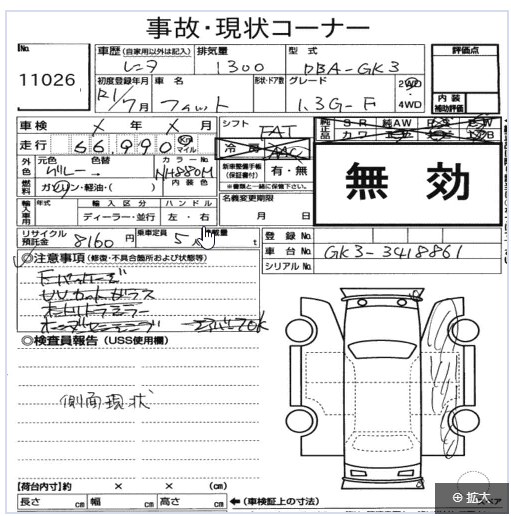 事故・現状コーナー
No.
11026
車歴(自家用以外は記入) 排気量 型式 評価点
レンタ 1300 DBA-GK3
初度登録年月 車名 形状・ドア数 グレード 2WD
R1/7月 フィット 1.3G-F 4WD
内装
補助評価
車検 × 年 × 月 シフト FAT
走行 66,990 km マイル 冷房 AAC
純正品 SR 純AW PS PW
カワ TV
外色 元色 色替 カラーNo.
グレー NH880M
新車整備手帳(保証書付) 有・無
※書類と一緒に保管下さい。
燃料 ガソリン・軽油・( ) 内装色
無効
輸入車用 年式 輸入区分 ハンドル
ディーラー・並行 左・右
名義変更期限
月 日
リサイクル預託金 8160 円 乗車定員 5人 積載量 t
登録No.
車台No. GK3-3418861
シリアルNo.
◎注意事項(修復・不具合箇所および状態等)
Fパッケージ
UVカットガラス
◎検査員報告(USS使用欄)
側面現状
【荷台内寸】約 × × (cm)
長さ cm 幅 cm 高さ cm ←(車検証上の寸法)
スペア
⊕ 拡大